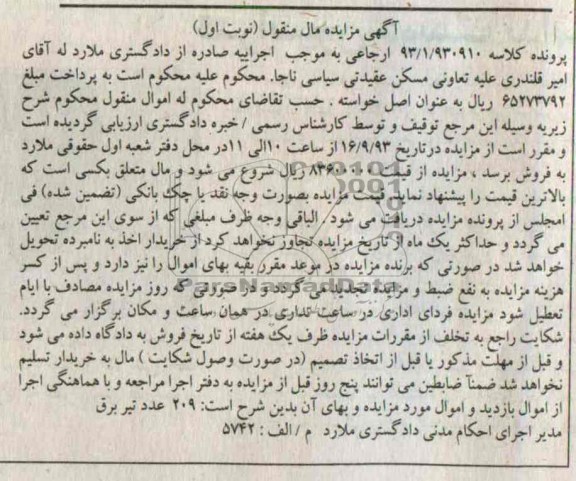 آگهی مزایده مال منقول (نوبت اول)
پرونده کلاسه ۹۳/۱/۹۳۰۹۱۰ ارجاعی به موجب اجراییه صادره از دادگستری ملارد له آقای
امیر قلندری علیه تعاونی مسکن عقیدتی سیاسی ناجا. محکوم علیه محکوم است به پرداخت مبلغ
۶۵۲۷۳۷۹۲ ریال به عنوان اصل خواسته . حسب تقاضای محکوم له اموال منقول محکوم شرح
زیربه وسیله این مرجع توقیف و توسط کارشناس رسمی / خبره دادگستری ارزیابی گردیده است
و مقرر است از مزایده درتاریخ ۱۶/۹/۹۳ از ساعت ۱۰الی ۱۱در محل دفتر شعبه اول حقوقی ملارد
به فروش برسد ، مزایده از قیمت ۸۳۶۰۰۰۰۰ ریال شروع می شود و مال متعلق بکسی است که
بالاترین قیمت را پیشنهاد نماید. قیمت مزایده بصورت وجه نقد یا چک بانکی (تضمین شده) فی
امجلس از پرونده مزایده دریافت می شود . الباقی وجه ظرف مبلغی که از سوی این مرجع تعیین
می گردد و حداکثر یک ماه از تاریخ مزایده تجاوز نخواهد کرد از خریدار اخذ به نامبرده تحویل
خواهد شد در صورتی که برنده مزایده در موعد مقرر بقیه بهای اموال را نیز دارد و پس از کسر
هزینه مزایده به نفع ضبط و مزایده تجدید می گردد و در صورتی که روز مزایده مصادف با ایام
تعطیل شود مزایده فردای اداری در ساعت تداری در همان ساعت و مکان برگزار می گردد.
شکایت راجع به تخلف از مقررات مزایده ظرف یک هفته از تاریخ فروش به دادگاه داده می شود
و قبل از مهلت مذکور یا قبل از اتخاذ تصمیم (در صورت وصول شکایت ) مال به خریدار تسلیم
نخواهد شد ضمناً ضابطین می توانند پنج روز قبل از مزایده به دفتر اجرا مراجعه و با هماهنگی اجرا
از اموال بازدید و اموال مورد مزایده و بهای آن بدین شرح است: ۲۰۹ عدد تیر برق
مدیر اجرای احکام مدنی دادگستری ملارد م / الف : ۵۷۴۲